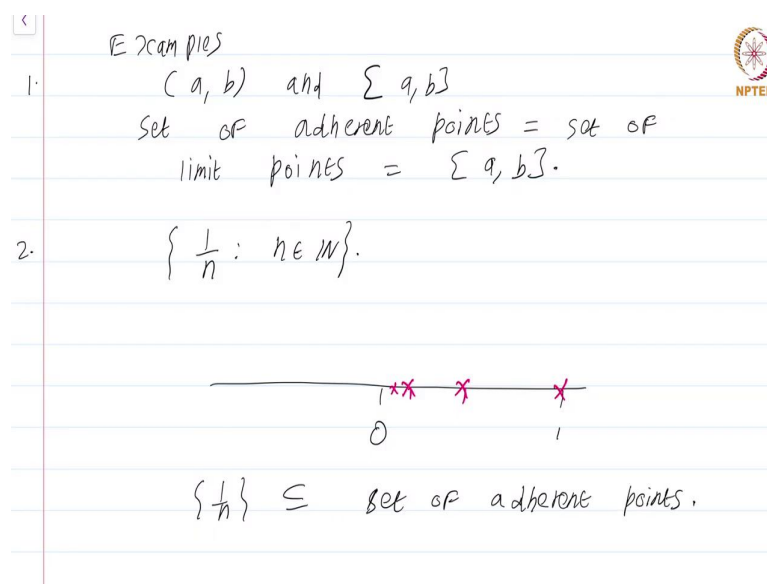 Examples
1. (a, b) and [a, b]
set of adherent points = set of
limit points = [a, b].
2. { 1/n : n ∈ ℕ }.
0 1
{1/n} ⊆ set of adherent points.
NPTEL